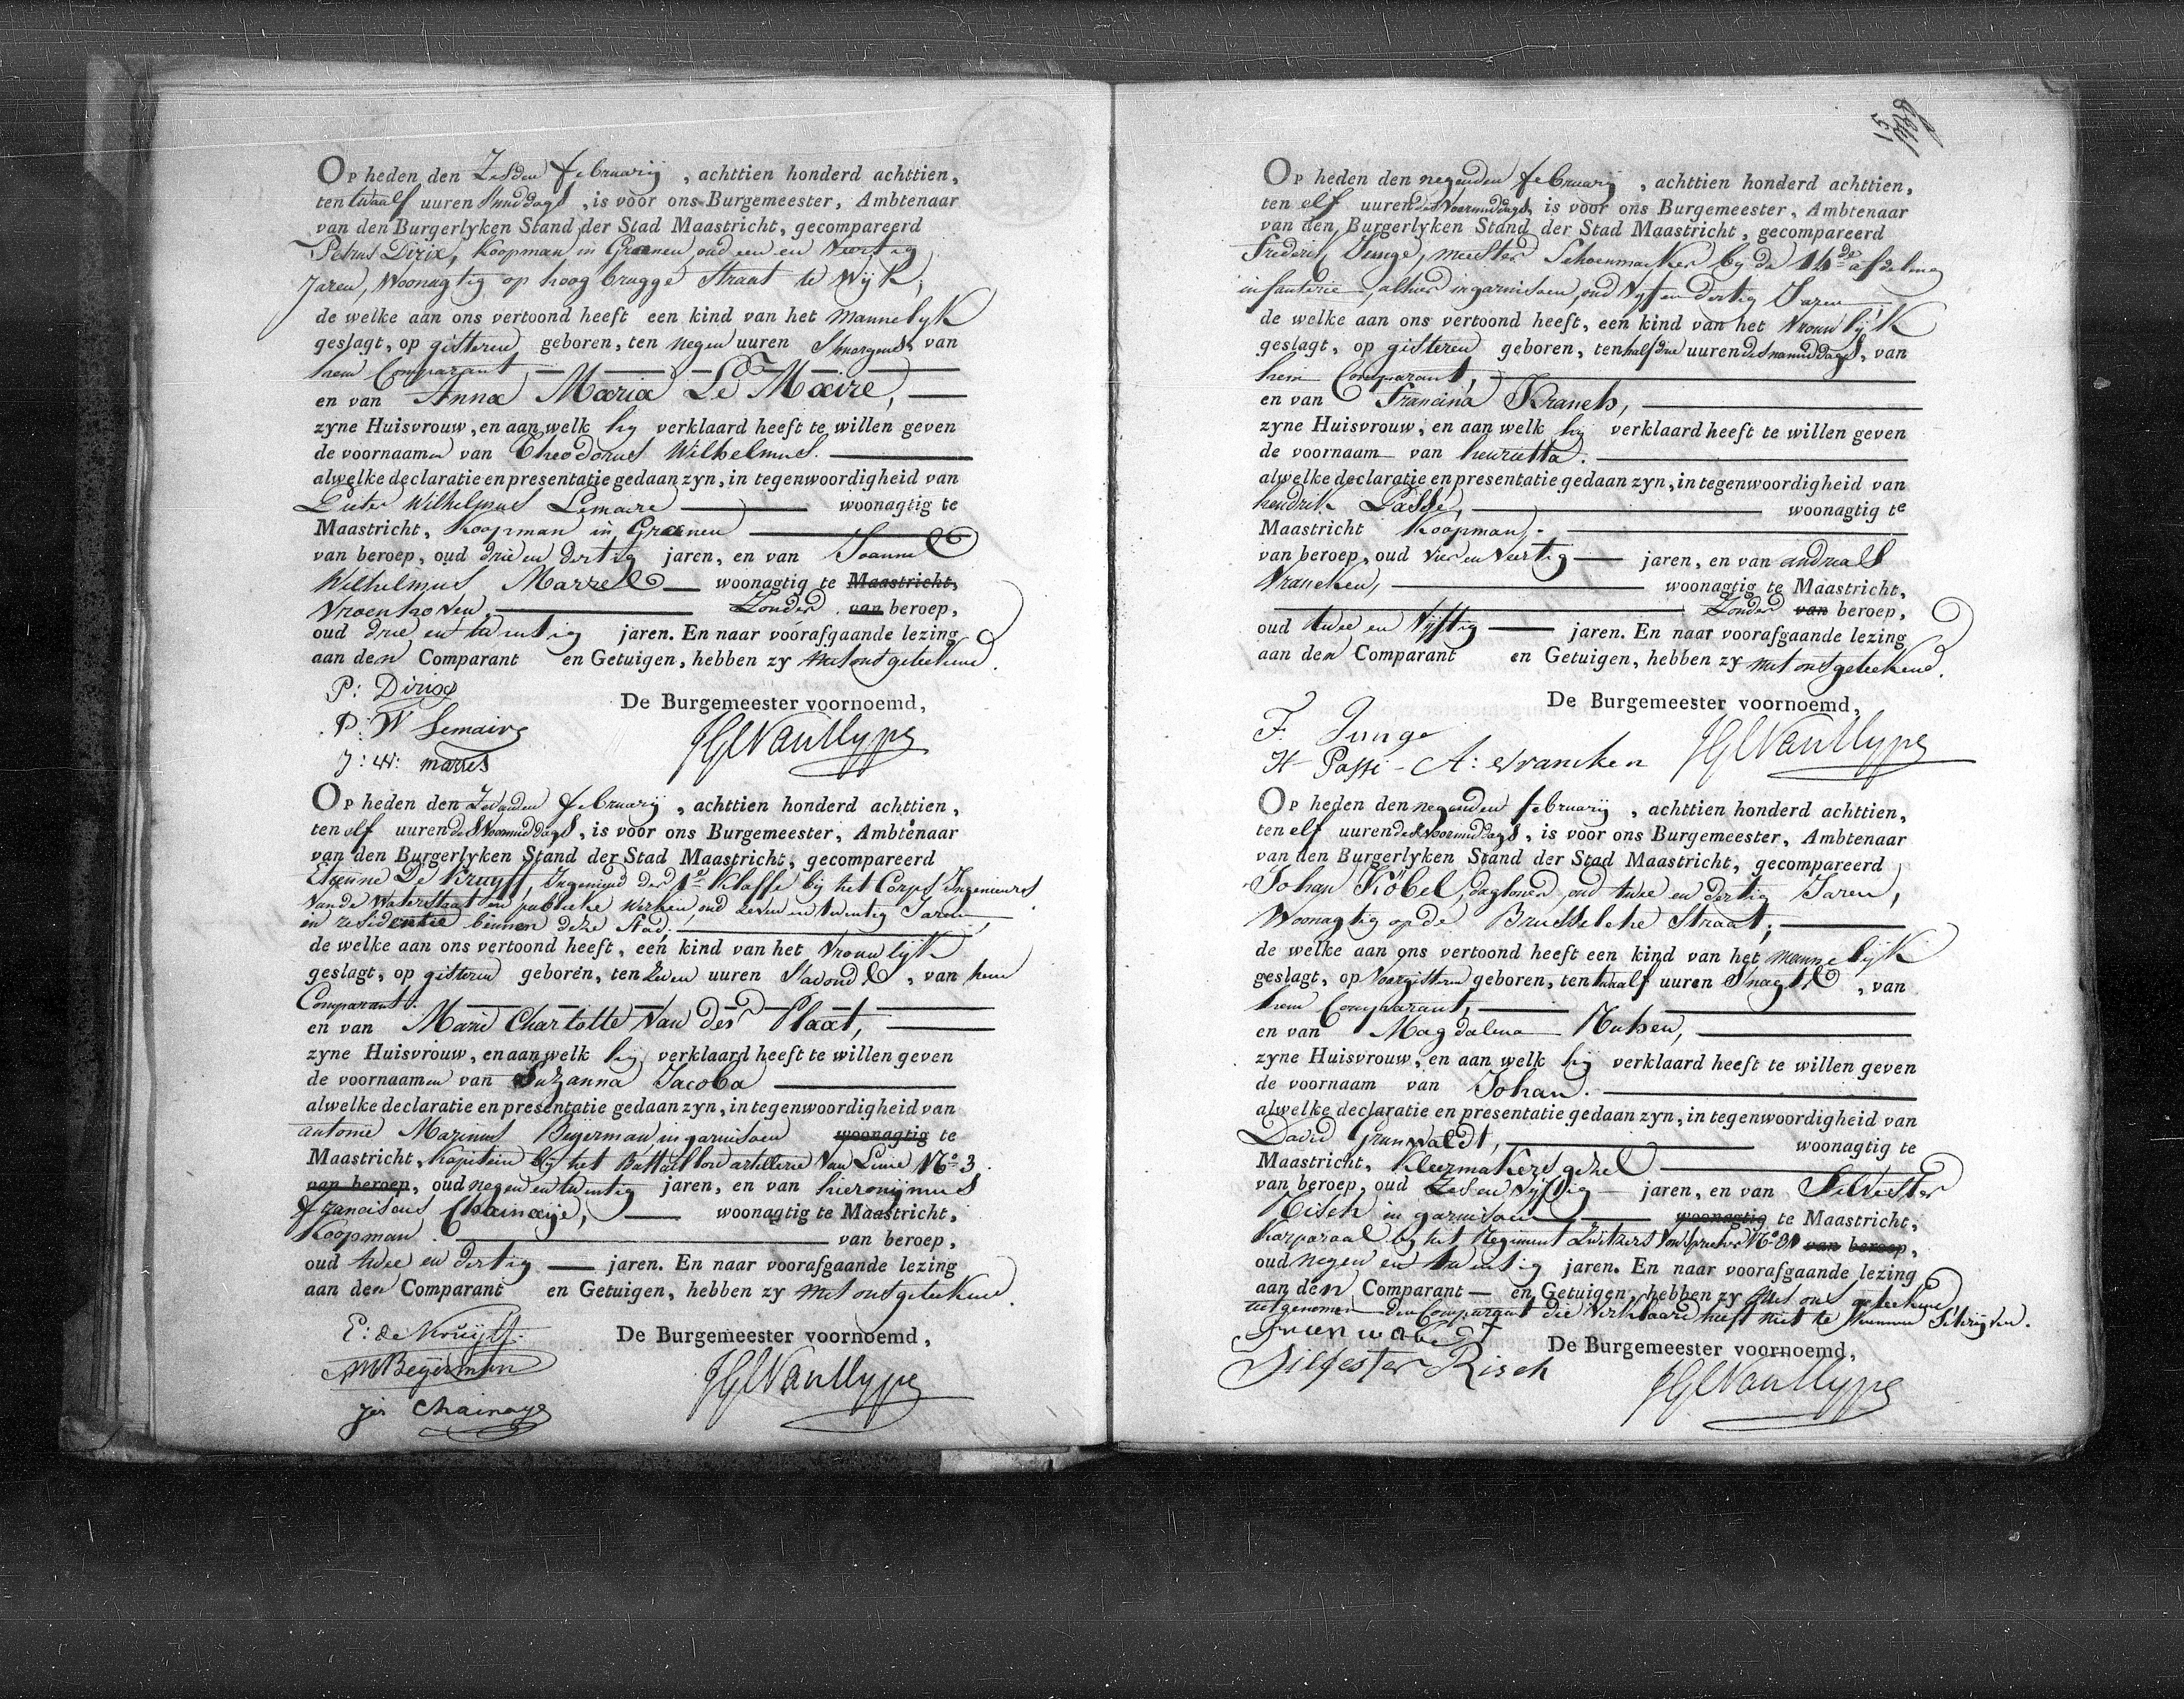 Op heden den Zesden februarij , achttien honderd achttien,
ten twaalf uuren smiddags , is voor ons Burgemeester, Ambtenaar
van den Burgerlyken Stand der Stad Maastricht, gecompareerd
Petrus Dirix, Koopman in Graanen oud een en Veertig
Jaren, Woonagtig op hoog brugge Straat te Wijk,
de welke aan ons vertoond heeft een kind van het Mannelyk
geslagt, op gisteren geboren, ten negen uuren Smorgends van
hem Comparant
en van Anna Maria Le Maire,
zyne Huisvrouw, en aan welk hy verklaard heeft te willen geven
de voornaamen van Theodorus Wilhelmus.
alwelke declaratie en presentatie gedaan zyn, in tegenwoordigheid van
Pieter Wilhelmus Lemaire woonagtig te
Maastricht, Koopman in Graanen
van beroep, oud drie en dertig jaren, en van Joannes
Wilhelmus Marres woonagtig te Maastricht,
Vroenhoven, Zonder van beroep,
oud drie en twintig jaren. En naar voorafgaande lezing
aan den Comparant en Getuigen, hebben zy met ons geteekend.
P: Dirix
De Burgemeester voornoemd,
P: W Lemaire
J: W: marres
Op heden den Zevanden februarij , achttien honderd achttien,
ten elf uuren des Voormiddags, is voor ons Burgemeester, Ambtenaar
van den Burgerlyken Stand der Stad Maastricht, gecompareerd
Etienne De Kruyff, Ingenieur der 1e Klasse bij het Corps Ingenieurs
Van de Waterstaat en publieke Werken, oud zeven en twintig Jaren,
in residentie binnen deze Stad.
de welke aan ons vertoond heeft, een kind van het Vrouwlijk
geslagt, op gisteren geboren, ten Zeven uuren Savonds , van hem
Comparant.
en van Marie Charlotte Van der Plaat,
zyne Huisvrouw, en aan welk hij verklaard heeft te willen geven
de voornaamen van Suzanna Jacoba
alwelke declaratie en presentatie gedaan zyn, in tegenwoordigheid van
antonie Marinus Beyerman in garnisoen woonagtig te
Maastricht, Kapitein bij het Battaillon artillerie Van Linie No 3
van beroep, oud negen en twintig jaren, en van hieronijmus
franciscus Chainaije, woonagtig te Maastricht,
Koopman van beroep,
oud twee en dertig jaren. En naar voorafgaande lezing
aan den Comparant en Getuigen, hebben zy met ons geteekend.
E: de Kruijff.
De Burgemeester voornoemd,
AMBeyerman
jér Chainaye
15
Op heden den negenden februarij , achttien honderd achttien,
ten elf uuren des Voormiddags, is voor ons Burgemeester, Ambtenaar
van den Burgerlyken Stand der Stad Maastricht, gecompareerd
frederik Junge, meester Schoenmaker bij de afdeling
infanterie, alhier in garnisoen, oud Vyf en dertig Jaren
de welke aan ons vertoond heeft, een kind van het Vrouwlijk
geslagt, op gisteren geboren, ten half drie uuren des namiddags, van
hem Comparant,
en van Francina
zyne Huisvrouw, en aan welk hij verklaard heeft te willen geven
de voornaam van henrietta.
alwelke declaratie en presentatie gedaan zyn, in tegenwoordigheid van
hendrik Passe, woonagtig te
Maastricht Koopman,
van beroep, oud Vier en Veertig jaren, en van andreas
Vrancken, woonagtig te Maastricht,
Zonder van beroep,
oud twee en Vijftig jaren. En naar voorafgaande lezing
aan den Comparant en Getuigen, hebben zy met ons geteekend.
De Burgemeester voornoemd,
F. Junge
H Passi - A: Vrancken
Op heden den negenden februarij , achttien honderd achttien,
ten elf uuren des voormiddags, is voor ons Burgemeester, Ambtenaar
van den Burgerlyken Stand der Stad Maastricht, gecompareerd
Johan Köbel, dagloner, oud twee en dertig Jaren,
Woonagtig op de Brusselsche Straat,
de welke aan ons vertoond heeft een kind van het mannelijk
geslagt, op Voorgisteren geboren, ten twaalf uuren Snagts , van
hem Comparant,
en van Magdalena
zyne Huisvrouw, en aan welk hij verklaard heeft te willen geven
de voornaam van Johan.
alwelke declaratie en presentatie gedaan zyn, in tegenwoordigheid van
David Grunwaldt, woonagtig te
Maastricht, Kleermakers gezel
van beroep, oud Zes en Vijftig jaren, en van Silvester
Risch in garnisoen woonagtig te Maastricht,
Korporaal bij het Regiment Zwitzers Von Sprecher van beroep,
oud negen en twintig jaren. En naar voorafgaande lezing
aan den Comparant en Getuigen, hebben zy met ons geteekend,
uitgenomen den Comparant die Verklaard heeft niet te kunnen Schrijven.
De Burgemeester voornoemd,
Silfester Risch